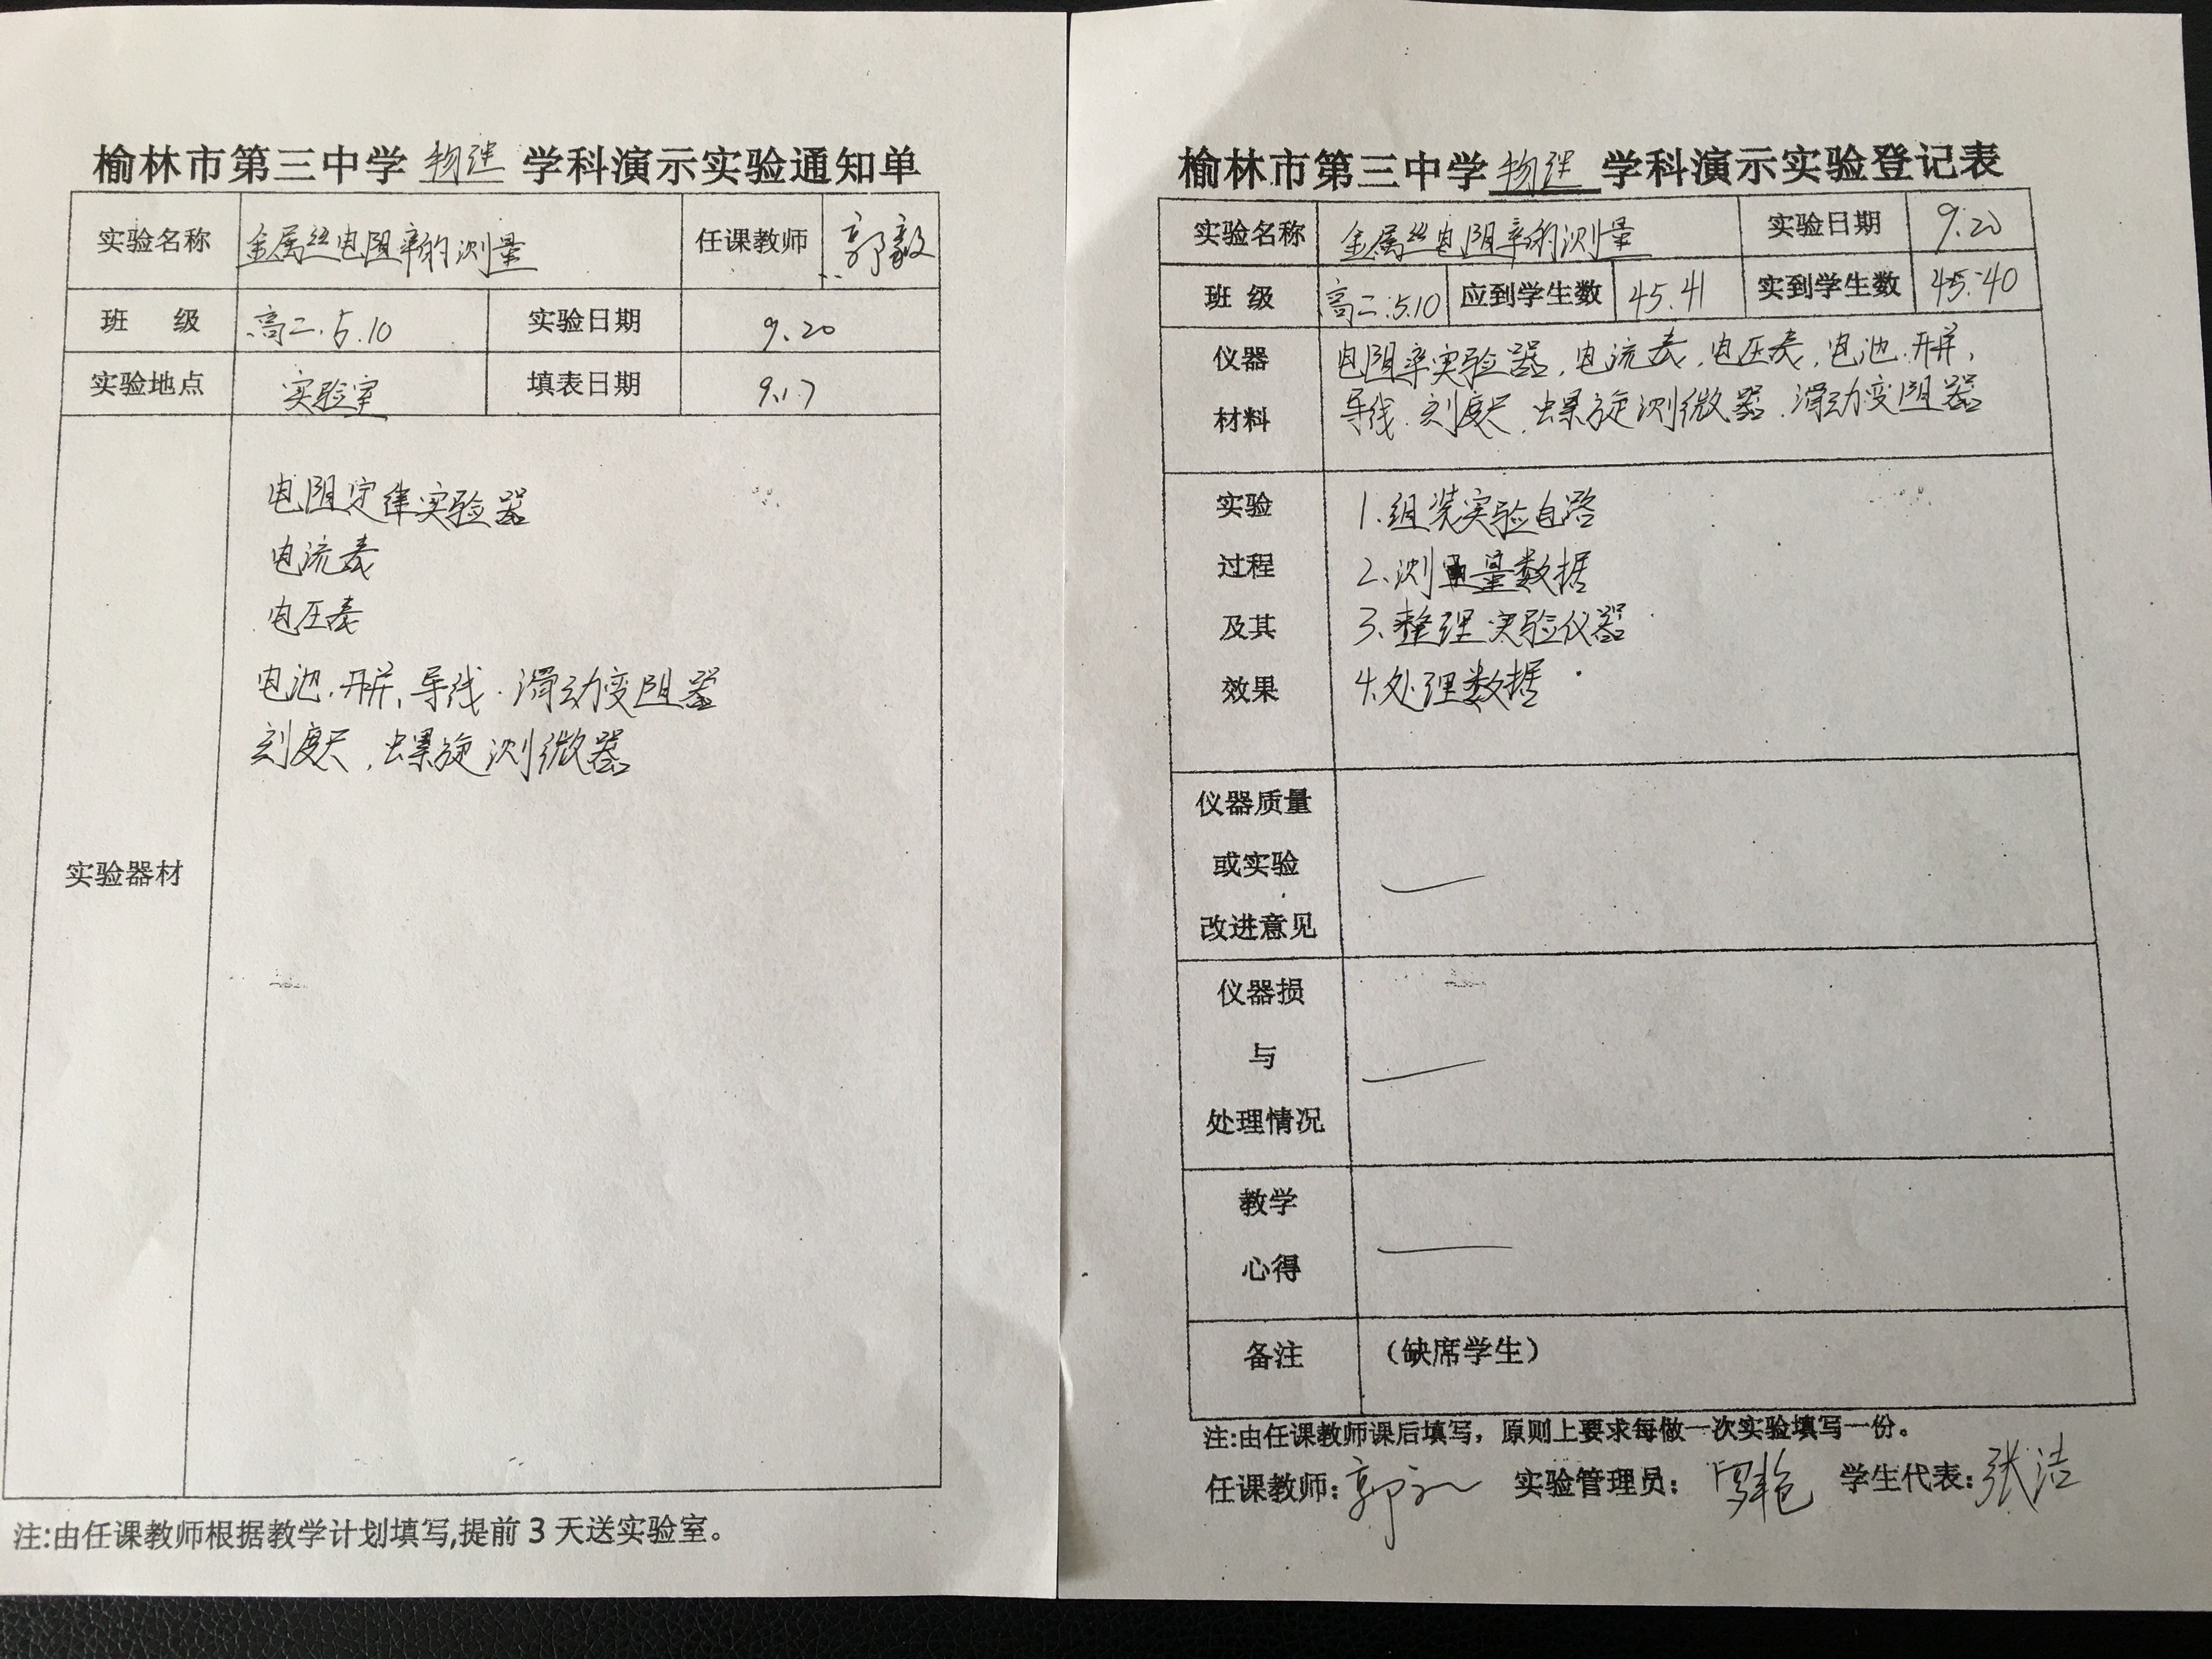 榆林市第三中学 物理 学科演示实验通知单
实验名称 金属丝电阻率的测量 任课教师 郭毅
班 级 高二.5.10 实验日期 9.20
实验地点 实验室 填表日期 9.17
实验器材
电阻定律实验器
电流表
电压表
电池.开关,导线.滑动变阻器
刻度尺,螺旋测微器
注:由任课教师根据教学计划填写,提前3天送实验室。
榆林市第三中学 物理 学科演示实验登记表
实验名称 金属丝电阻率的测量 实验日期 9.20
班 级 高二.5.10 应到学生数 45.41 实到学生数 45.40
仪器 电阻率实验器,电流表,电压表,电池.开关,
材料 导线.刻度尺,螺旋测微器.滑动变阻器
实验 1.组装实验电路
过程 2.测量数据
及其 3.整理实验仪器
效果 4.处理数据
仪器质量
或实验
改进意见
仪器损
与
处理情况
教学
心得
备注 (缺席学生)
注:由任课教师课后填写，原则上要求每做一次实验填写一份。
任课教师: 郭 实验管理员: 罗艳 学生代表: 张洁